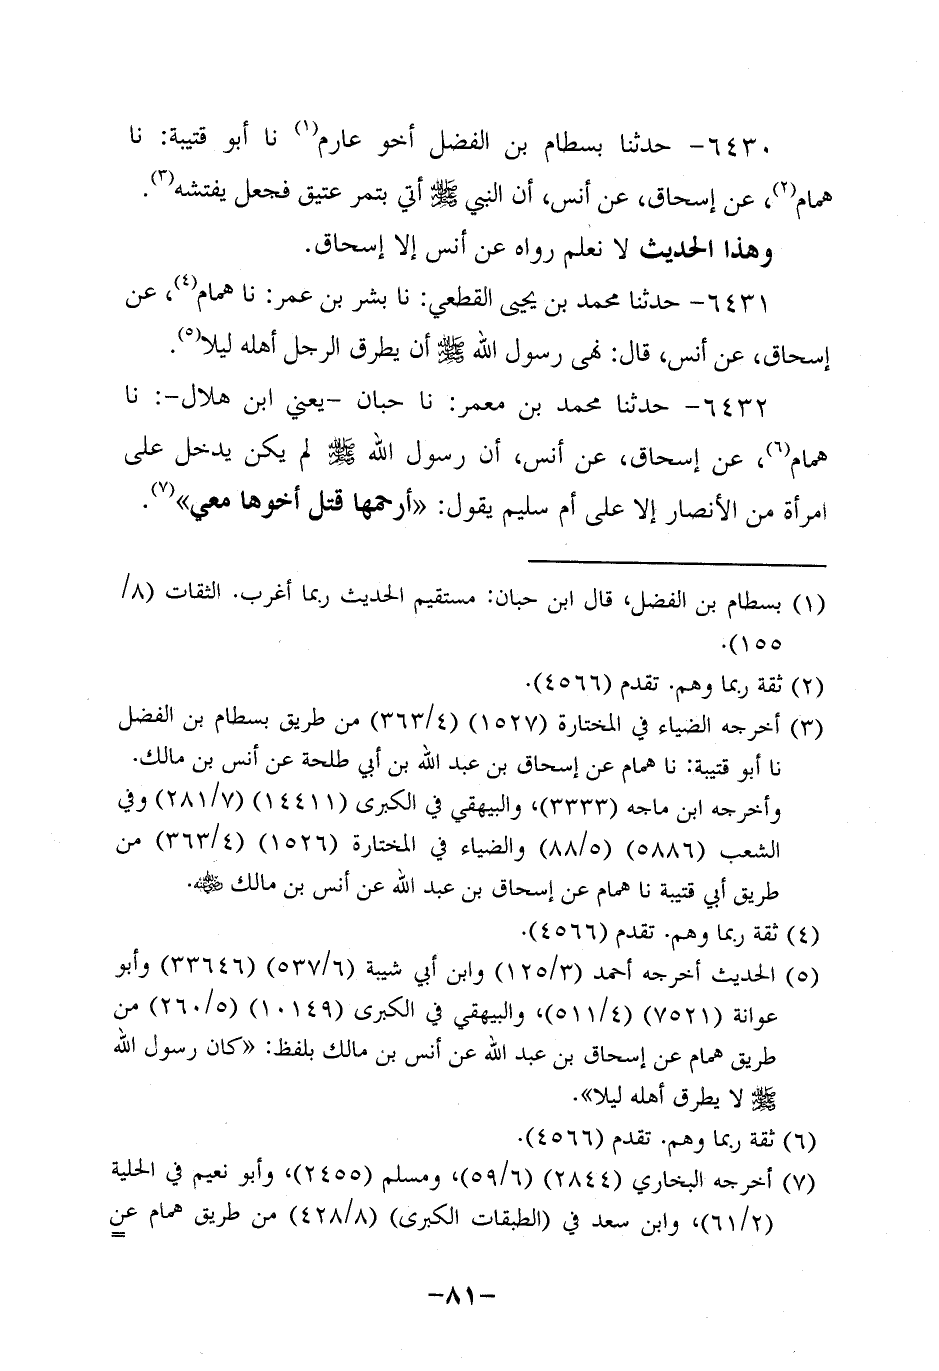 ٦٤٣٠- حدثنا بسطام بن الفضل أخو عارم(١) نا أبو قتيبة: نا
همام(٢)، عن إسحاق، عن أنس، أن النبي ﷺ أتي بتمر عتيق فجعل يفتشه(٣).
وهذا الحديث لا نعلم رواه عن أنس إلا إسحاق.
٦٤٣١- حدثنا محمد بن يحيى القطعي: نا بشر بن عمر: نا همام(٤)، عن
إسحاق، عن أنس، قال: نهى رسول الله ﷺ أن يطرق الرجل أهله ليلا(٥).
٦٤٣٢- حدثنا محمد بن معمر: نا حبان -يعني ابن هلال-: نا
همام(٦)، عن إسحاق، عن أنس، أن رسول الله ﷺ لم يكن يدخل على
امرأة من الأنصار إلا على أم سليم يقول: «أرحمها قتل أخوها معي»(٧).
(١) بسطام بن الفضل، قال ابن حبان: مستقيم الحديث ربما أغرب. الثقات (٨/
١٥٥).
(٢) ثقة ربما وهم. تقدم (٤٥٦٦).
(٣) أخرجه الضياء في المختارة (١٥٢٧) (٣٦٣/٤) من طريق بسطام بن الفضل
نا أبو قتيبة: نا همام عن إسحاق بن عبد الله بن أبي طلحة عن أنس بن مالك.
وأخرجه ابن ماجه (٣٣٣٣)، والبيهقي في الكبرى (١٤٤١١) (٢٨١/٧) وفي
الشعب (٥٨٨٦) (٨٨/٥) والضياء في المختارة (١٥٢٦) (٣٦٣/٤) من
طريق أبي قتيبة نا همام عن إسحاق بن عبد الله عن أنس بن مالك رضي الله عنه.
(٤) ثقة ربما وهم. تقدم (٤٥٦٦).
(٥) الحديث أخرجه أحمد (١٢٥/٣) وابن أبي شيبة (٥٣٧/٦) (٣٣٦٤٦) وأبو
عوانة (٧٥٢١) (٥١١/٤)، والبيهقي في الكبرى (١٠١٤٩) (٢٦٠/٥) من
طريق همام عن إسحاق بن عبد الله عن أنس بن مالك بلفظ: «كان رسول الله
ﷺ لا يطرق أهله ليلا».
(٦) ثقة ربما وهم. تقدم (٤٥٦٦).
(٧) أخرجه البخاري (٢٨٤٤) (٥٩/٦)، ومسلم (٢٤٥٥)، وأبو نعيم في الحلية
(٦١/٢)، وابن سعد في (الطبقات الكبرى) (٤٢٨/٨) من طريق همام عن
=
-٨١-